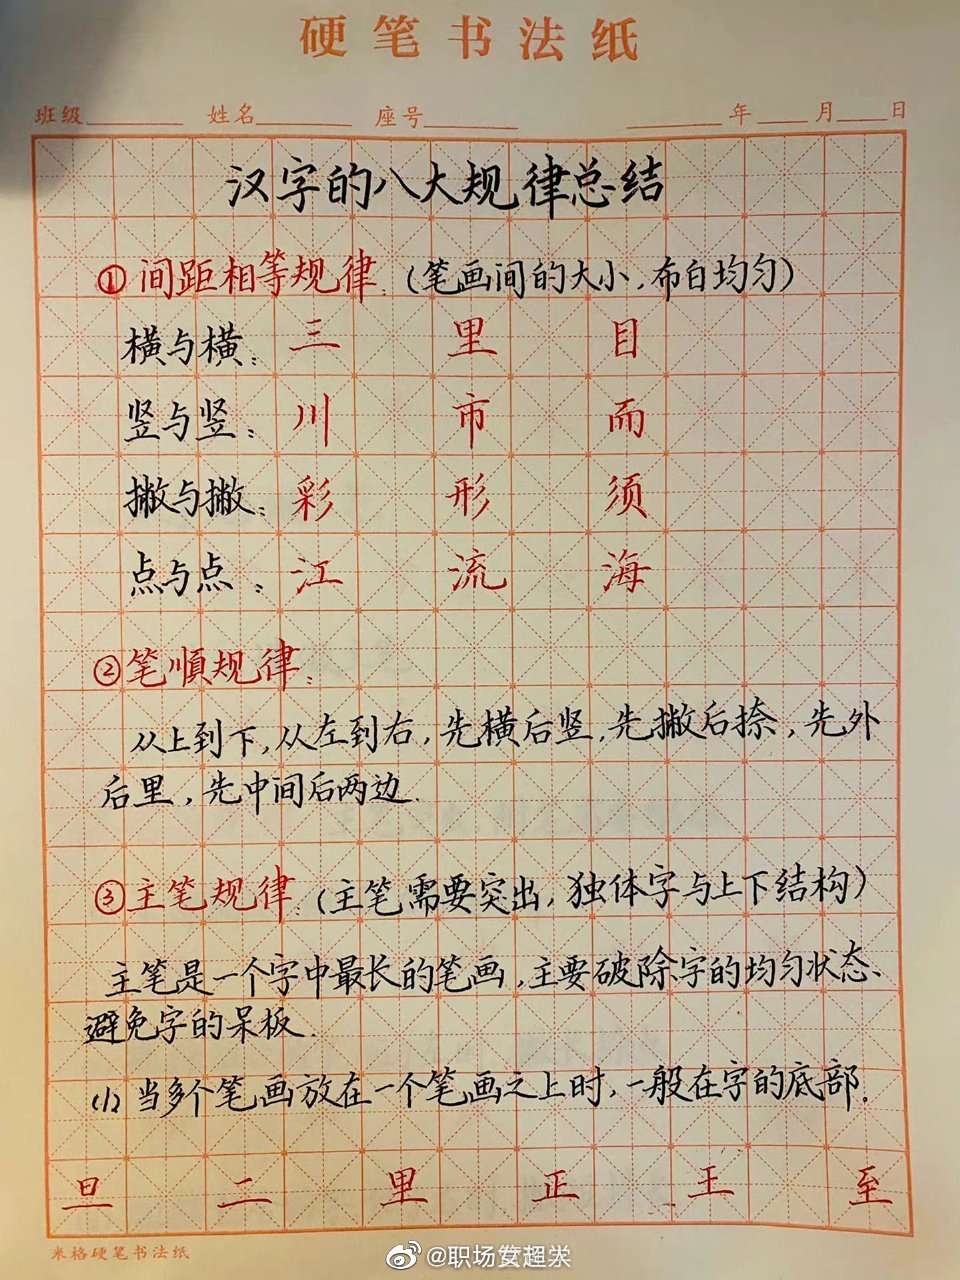 硬笔书法纸
班级 姓名 座号 年 月 日
汉字的八大规律总结
①间距相等规律:(笔画间的大小,布白均匀)
横与横: 三 里 目
竖与竖: 川 市 而
撇与撇: 彩 形 须
点与点: 江 流 海
②笔順规律:
从上到下,从左到右,先横后竖,先撇后捺,先外
后里,先中间后两边.
③主笔规律:(主笔需要突出,独体字与上下结构)
主笔是一个字中最长的笔画,主要破除字的均匀状态、
避免字的呆板.
(1)当多个笔画放在一个笔画之上时,一般在字的底部.
旦 二 里 正 王 至
米格硬笔书法纸
@职场女超